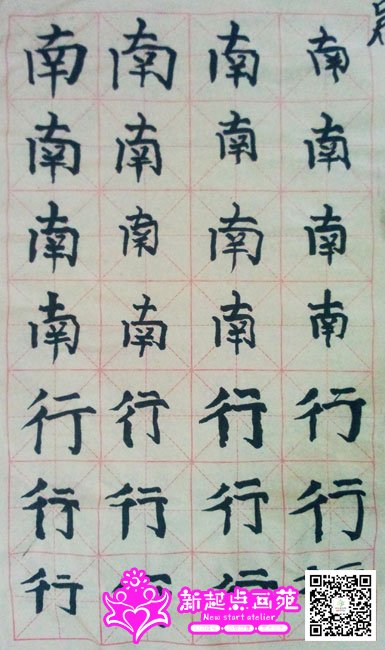 南南南南
南南南南
南南南南
南南南南
行行行行
行行行行
行行行
新起点画苑
New start atelier